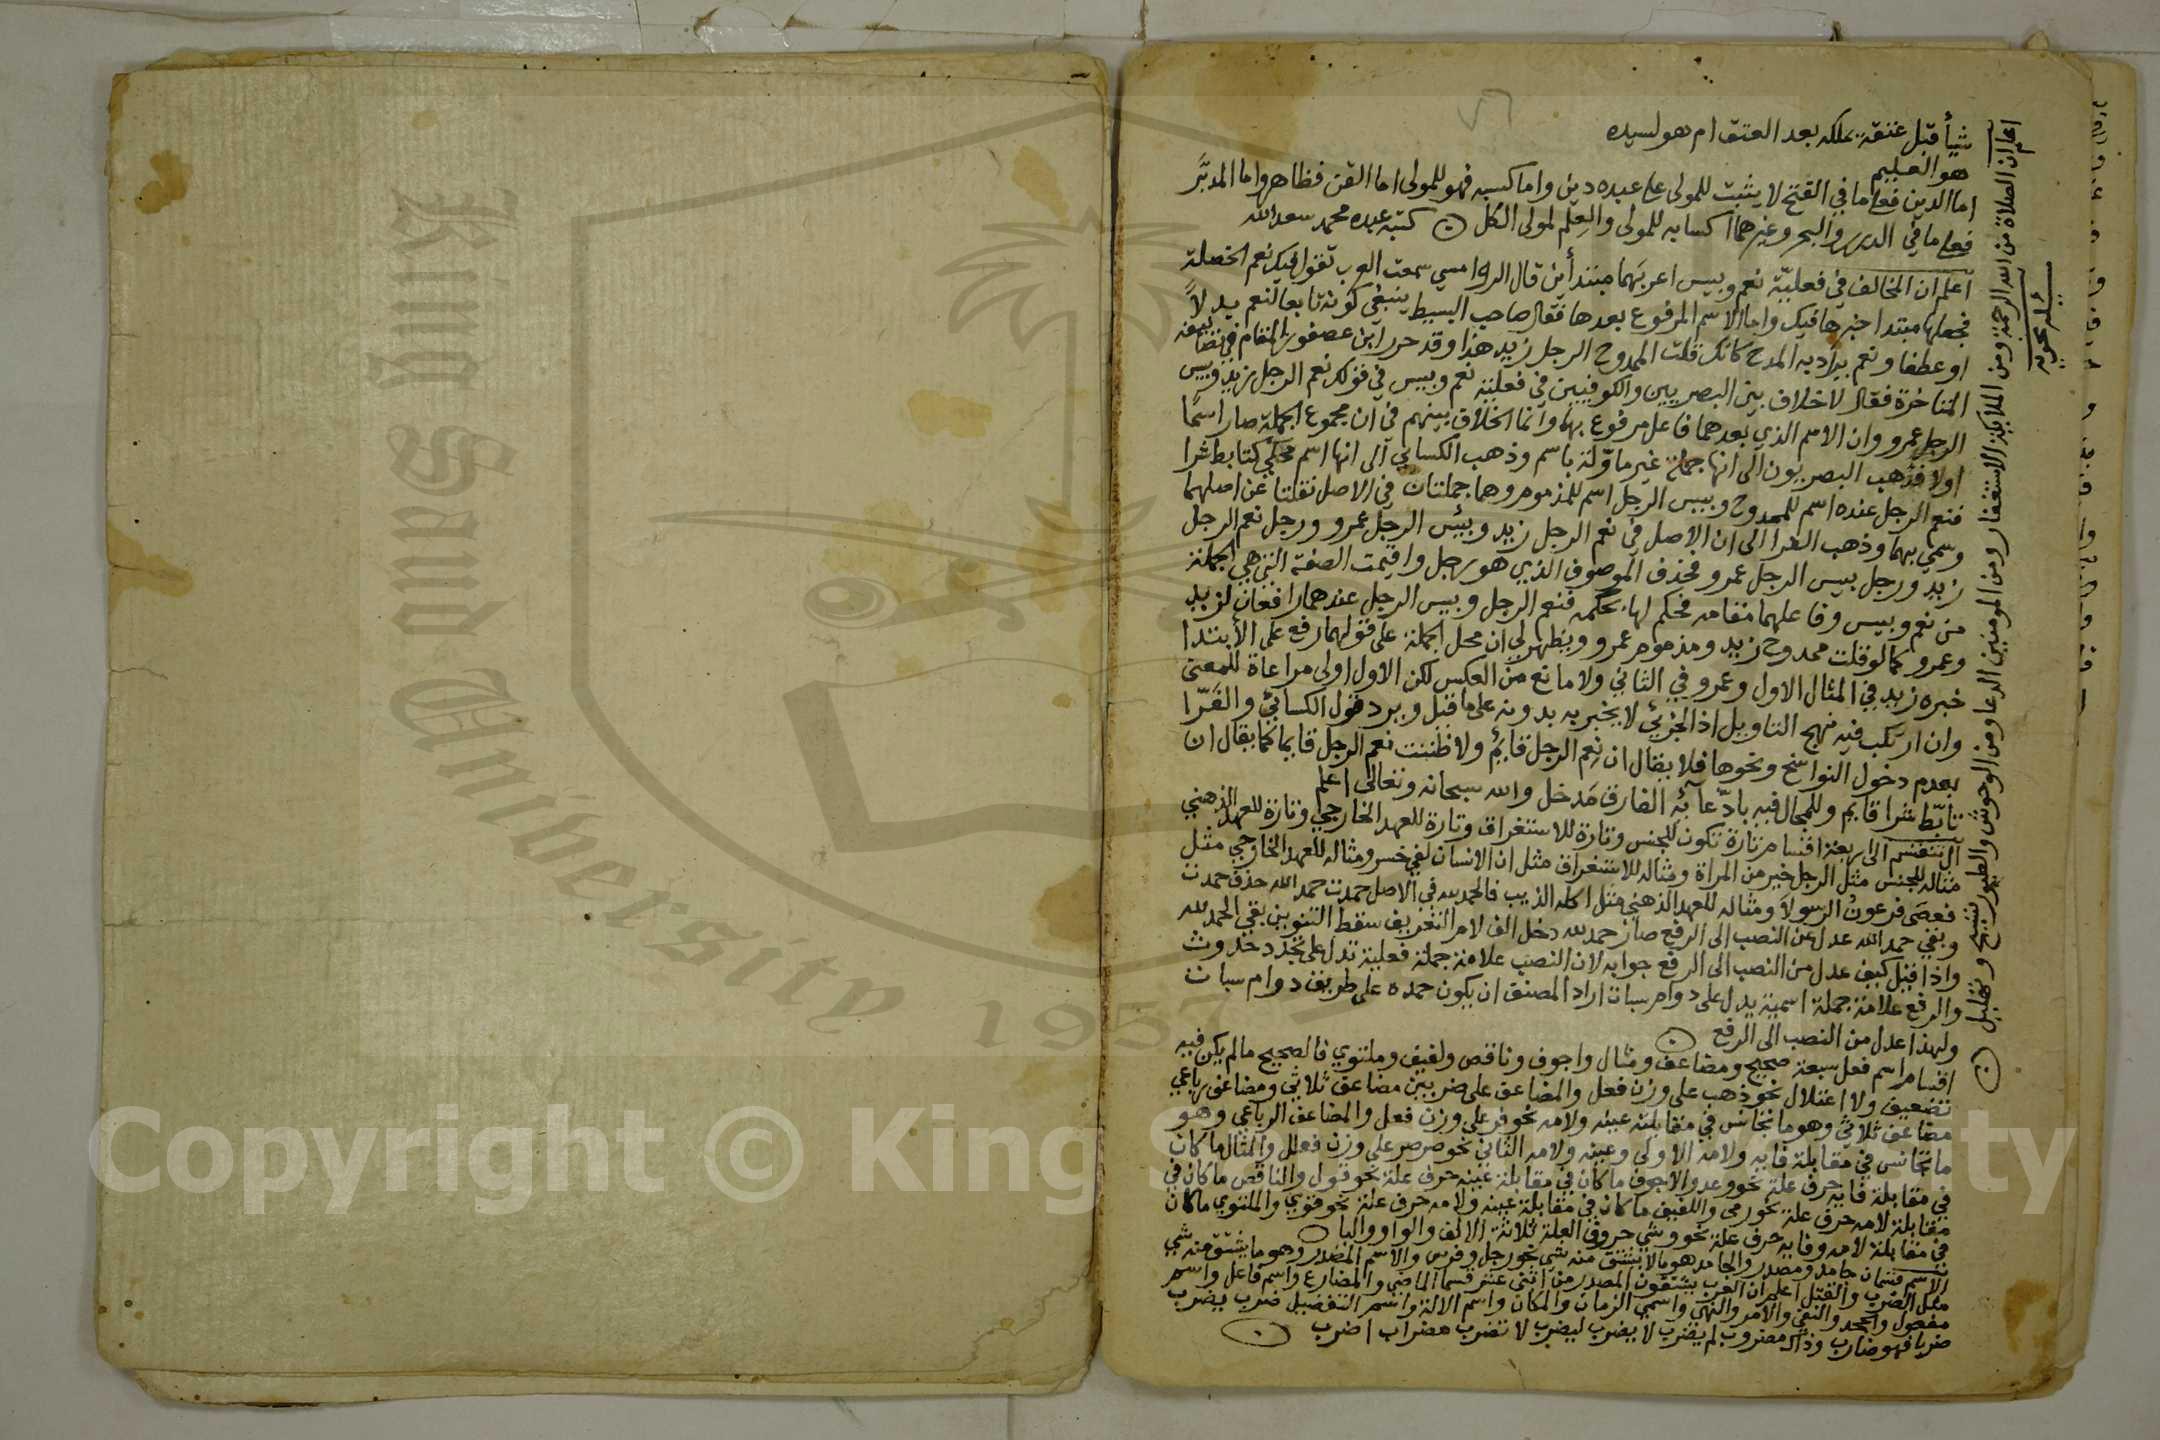 شيأ قبل عتقه يملكه بعد العتق ام هو لسيده
هو العليم
اما الدين فعلى ما في الفتح لا يثبت للمولى على عبده دين واما كسبه فهو للمولى اما القن فظاهر واما المدبَّر
فعلى ما في الدرر والبحر وغيرهما اكسابه للمولى والعلم لمولى الكل كتبه عبده محمد سعد الله
اعلم ان المخالف في فعلية نعم وبيس اعربهما مبتدأين قال الرواسي سمعت العرب تقول فيك نعم الخصلة
فجعلها مبتدا خبرها فيك واما الاسم المرفوع بعدها فقال صاحب البسيط ينبغي كونه تابعا لنعم بدلاً
او عطفا ونعم يراد به المدح كانك قلت الممدوح الرجل زيد هذا وقد حرر ابن عصفور المقام في تصانيفه
المتاخرة فقال لا خلاف بين البصريين والكوفيين في فعلية نعم وبيس في قولك نعم الرجل زيد وبيس
الرجل عمرو وان الاسم الذي بعدهما فاعل مرفوع بهما وانما الخلاف بينهم في ان مجموع الجملة صار اسمًا
اولا فذهب البصريون الى انها جملة غير ماوّلة باسم وذهب الكسائي الى انها اسم محكي كتابط شرا
فنعم الرجل عنده اسم للممدوح وبيس الرجل اسم للمذموم وهما جملتان في الاصل نقلتا عن اصلهما
وسمي بهما وذهب الفرا الى ان الاصل في نعم الرجل زيد وبئس الرجل عمرو ورجل نعم الرجل
زيد ورجل بيس الرجل عمرو فحذف الموصوف الذي هو رجل واقيمت الصفة التي هي الجملة
من نعم وبيس وفاعلهما مقامه فحكم لها بحكمه فنعم الرجل وبيس الرجل عندهما رافعان لزيد
وعمرو كما لو قلت ممدوح زيد ومذموم عمرو ويظهر لي ان محل الجملة على قولهما رفع على الابتدا
خبره زيد في المثال الاول وعمرو في الثاني ولا مانع من العكس لكن الاول اولى مراعاة للمعنى
وان ارتكب فيه نهج التاويل اذ الجزئي لا يخبر به بدونه على ما قيل ويرد قول الكسائي والفَرّا
بعدم دخول النواسخ ونحوها فلا يقال ان نعم الرجل قايم ولا ظننت نعم الرجل قايما كما يقال ان
تابّط شرا قايم وللمجال فيه بادّعآئه الفارق مَدخل والله سبحانه وتعالى اعلم
ال تنقسم الى اربعة اقسام تارة تكون للجنس وتارة للاستغراق وتارة للعهد الخارجي وتارة للعهد الذهني
مثاله للجنس مثل الرجل خير من المراة ومثاله للاستغراق مثل ان الانسان لفي خسر ومثاله للعهد الخارجي مثل
فعصى فرعونُ الرسولَ ومثاله للعهد الذهني مثل اكله الذيب فالحمد لله في الاصل حمدت حمد الله حذف حمدت
وبقي حمد الله عدل من النصب الى الرفع صار حمد لله دخل الف لام التعريف سقط التنوين بقي الحمد لله
واذا قيل كيف عدل من النصب الى الرفع جوابه لان النصب علامة جملة فعلية تدل على تجدد حدوث
والرفع علامة جملة اسمية يدل على دوام سبات اراد المصنف ان يكون حمده على طريق دوام سبات
ولهذا عدل من النصب الى الرفع
اقسام اسم فعل سبعة صحيح ومضاعف ومثال واجوف وناقص ولفيف وملتوي فالصحيح ما لم يكن فيه
تضعيف ولا اعتلال نحو ذهب على وزن فعل والمضاعف على ضربين مضاعف ثلاثي ومضاعف رباعي
مضاعف ثلاثي وهو ما تجانس في مقابلة عينه ولامه نحو فر على وزن فعل والمضاعف الرباعي وهو
ما تجانس في مقابلة فايه ولامه الاولى وعينه ولامه الثاني نحو صرصر على وزن فعلل والمثال ما كان
في مقابلة فايه حرف علة نحو وعد والاجوف ما كان في مقابلة عينه حرف علة نحو قول والناقص ما كان في
مقابلة لامه حرف علة نحو رمى واللفيف ما كان في مقابلة عينه ولامه حرف علة نحو قوي والملتوي ما كان
في مقابلة لامه وفايه حرف علة نحو وشي حروف العلة ثلاثة الالف والواو واليا
الاسم قسمان جامد ومصدر والجامد هو ما لا يشتق منه شي نحو رجل وفرس والاسم المصدر وهو ما يشتق منه شي
مثل الضرب والقتل اعلم ان العرب يشتقون المصدر من اثنى عشر قسما الماضي والمضارع واسم فاعل واسم
مفعول والجحد والنفي والامر والنهي واسمي الزمان والمكان واسم الالة واسم التفضيل ضرب يضرب
ضربا فهو ضارب وذاك مضروب لم يضرب لا يضرب ليضرب لا تضرب مضراب اضرب
اعلم ان الصلاة من الله الرحمة ومن الملايكة الاستغفار ومن المومنين الدعا ومن الوحوش والطيور تسبيح وتهليل
Copyright © King Saud University
King Saud University 1957